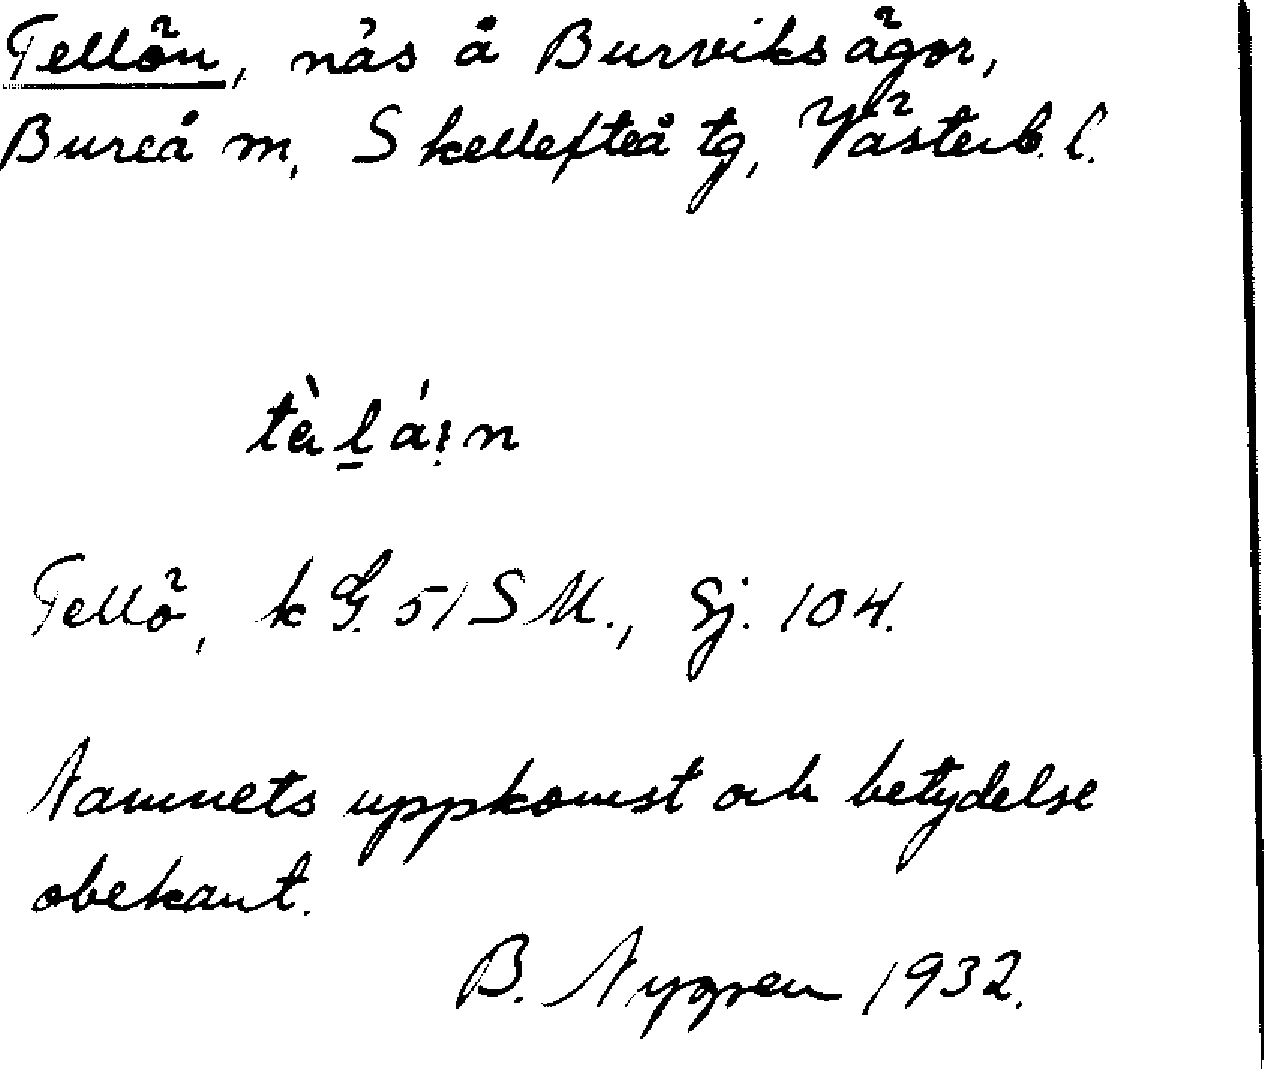 Tellön, näs å Burviks ägor,
Bureå m, Skellefteå tg, Västerb. l.
Tellö, k G. 51 S M., Sj. 104.
Namnets uppkomst och betydelse
obekant.
B. Nygren 1932.